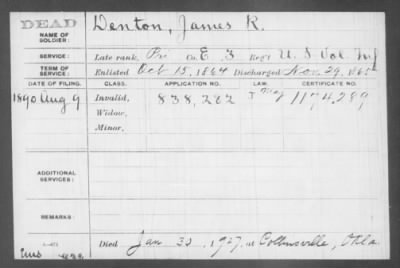 DEAD
NAME OF SOLDIER: Denton, James R.
SERVICE: Late rank, Pri Co. E 3 Reg't U. S Vol. Inf
TERM OF SERVICE: Enlisted Oct 15, 1864 Discharged Nov. 29, 1865
DATE OF FILING. CLASS. APPLICATION NO. LAW. CERTIFICATE NO.
1890 Aug 9 Invalid, 838,222 1174,289
Widow,
Minor,
ADDITIONAL SERVICES:
REMARKS:
Died Jan 1927, at Collinsville, Okla.